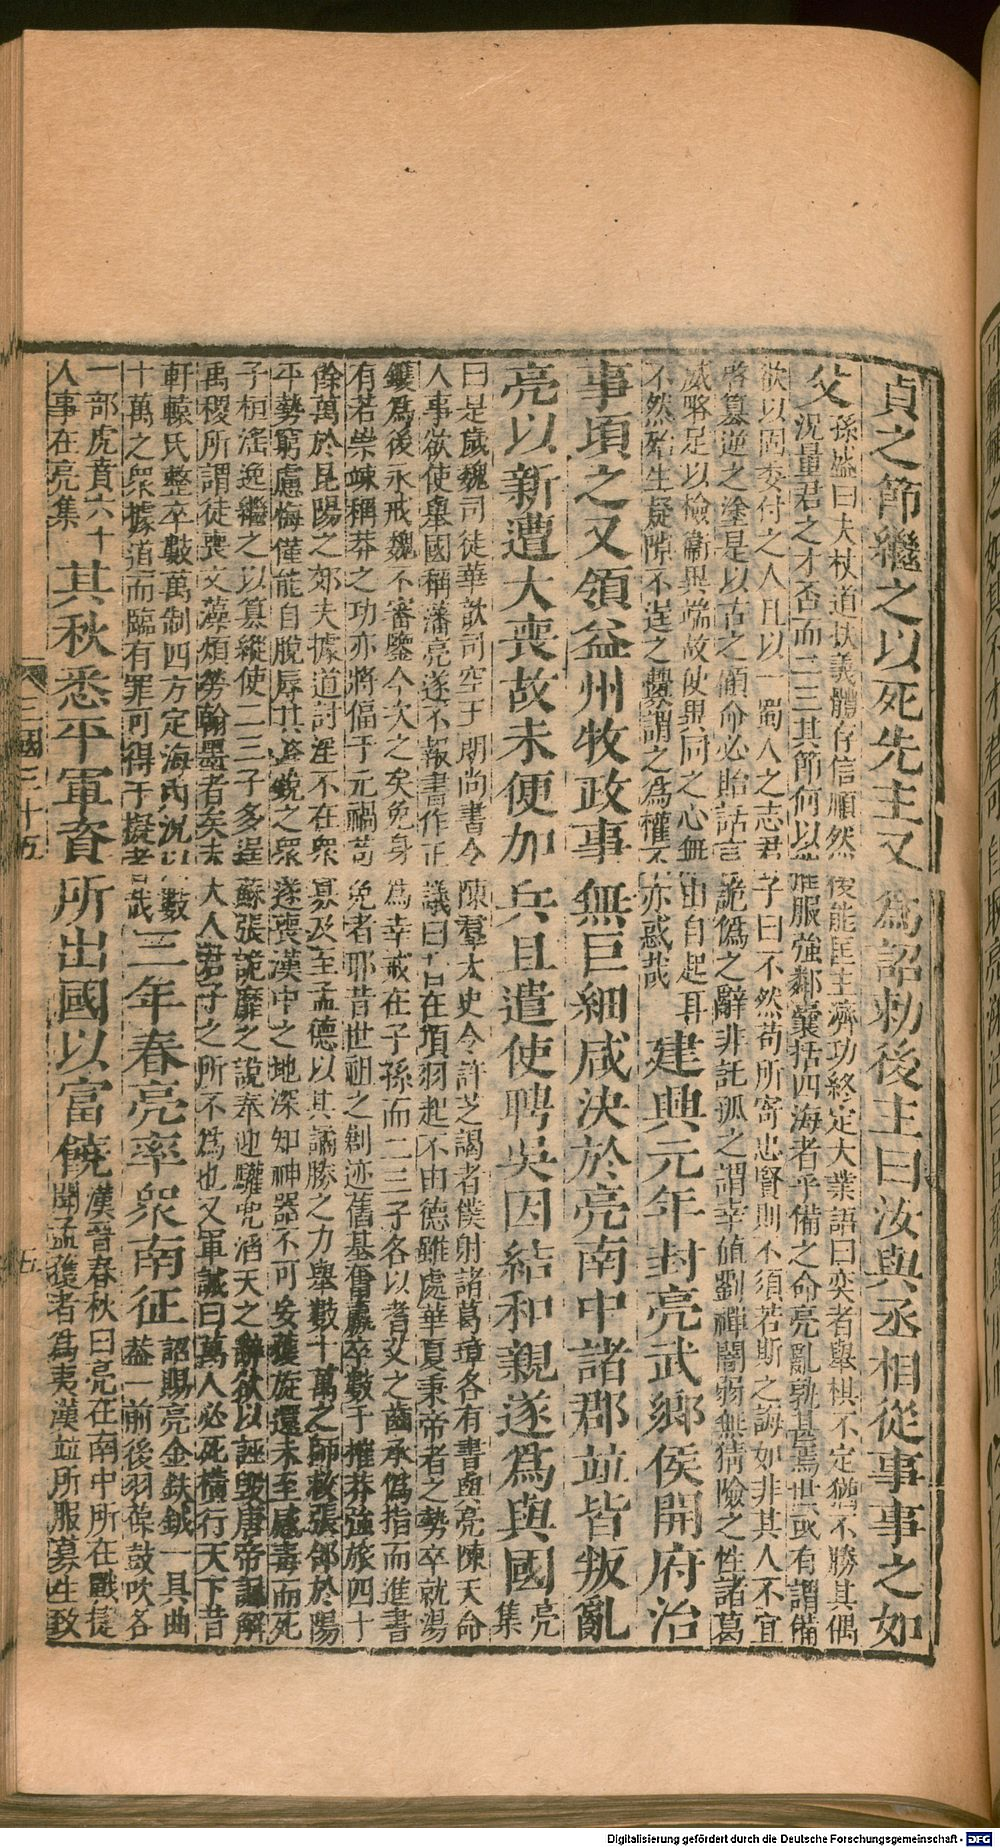 貞之節繼之以死先主又為詔勑後主曰汝與丞相從事事之如
父
孫盛曰夫杖道扶義體存信順然後能匡主濟功終定大業語曰奕者舉棋不定猶不勝其偶
況量君之才否而二三其節何以摧服強鄰囊括四海者乎備之命亮亂孰甚焉世或有謂備
欲以固委付之人且以一蜀人之志君子曰不然苟所寄忠賢則不須若斯之誨如非其人不宜
啓篡逆之塗是以古之顧命必貽話言詭偽之辭非託孤之謂幸値劉禪闇弱無猜險之性諸葛
威略足以檢衞異端故使異同之心無由自起耳
不然殆生疑隙不逞之釁謂之為權不亦惑哉
建興元年封亮武鄉侯開府治
事頃之又領益州牧政事無巨細咸決於亮南中諸郡並皆叛亂
亮以新遭大喪故未便加兵且遣使聘吳因結和親遂為與國
亮
集
曰是歲魏司徒華歆司空王朗尚書令陳羣太史令許芝謁者僕射諸葛璋各有書與亮陳天命
人事欲使舉國稱藩亮遂不報書作正議曰昔在項羽起不由德雖處華夏秉帝者之勢卒就湯
鑊為後永戒魏不審鑒今次之矣免身為幸戒在子孫而二三子各以耆艾之齒承偽指而進書
有若崇竦稱莽之功亦將偪于元禍苟免者耶昔世祖之創迹舊基奮羸卒數千摧莽強旅四十
餘萬於昆陽之郊夫據道討淫不在衆寡及至孟德以其譎勝之力舉數十萬之師救張郃於陽
平勢窮慮悔僅能自脫辱其鋒銳之衆遂喪漢中之地深知神器不可妄獲旋還未至感毒而死
子桓淫逸繼之以篡縱使二三子多逞蘇張詭靡之說奉迎驩兜滔天之辭欲以誣毀唐帝諷解
禹稷所謂徒喪文藻煩勞翰墨者矣夫大人君子之所不為也又軍誡曰萬人必死橫行天下昔
軒轅氏整卒數萬制四方定海內況以數
十萬之衆據道而臨有罪可得干擬者哉
三年春亮率衆南征
詔賜亮金鈇鉞一具曲
蓋一前後羽葆鼓吹各
一部虎賁六十
人事在亮集
其秋悉平軍資所出國以富饒
漢晉春秋曰亮在南中所在戰捷
聞孟獲者為夷漢並所服募生致
三國三十五
五
Digitalisierung gefördert durch die Deutsche Forschungsgemeinschaft - DFG